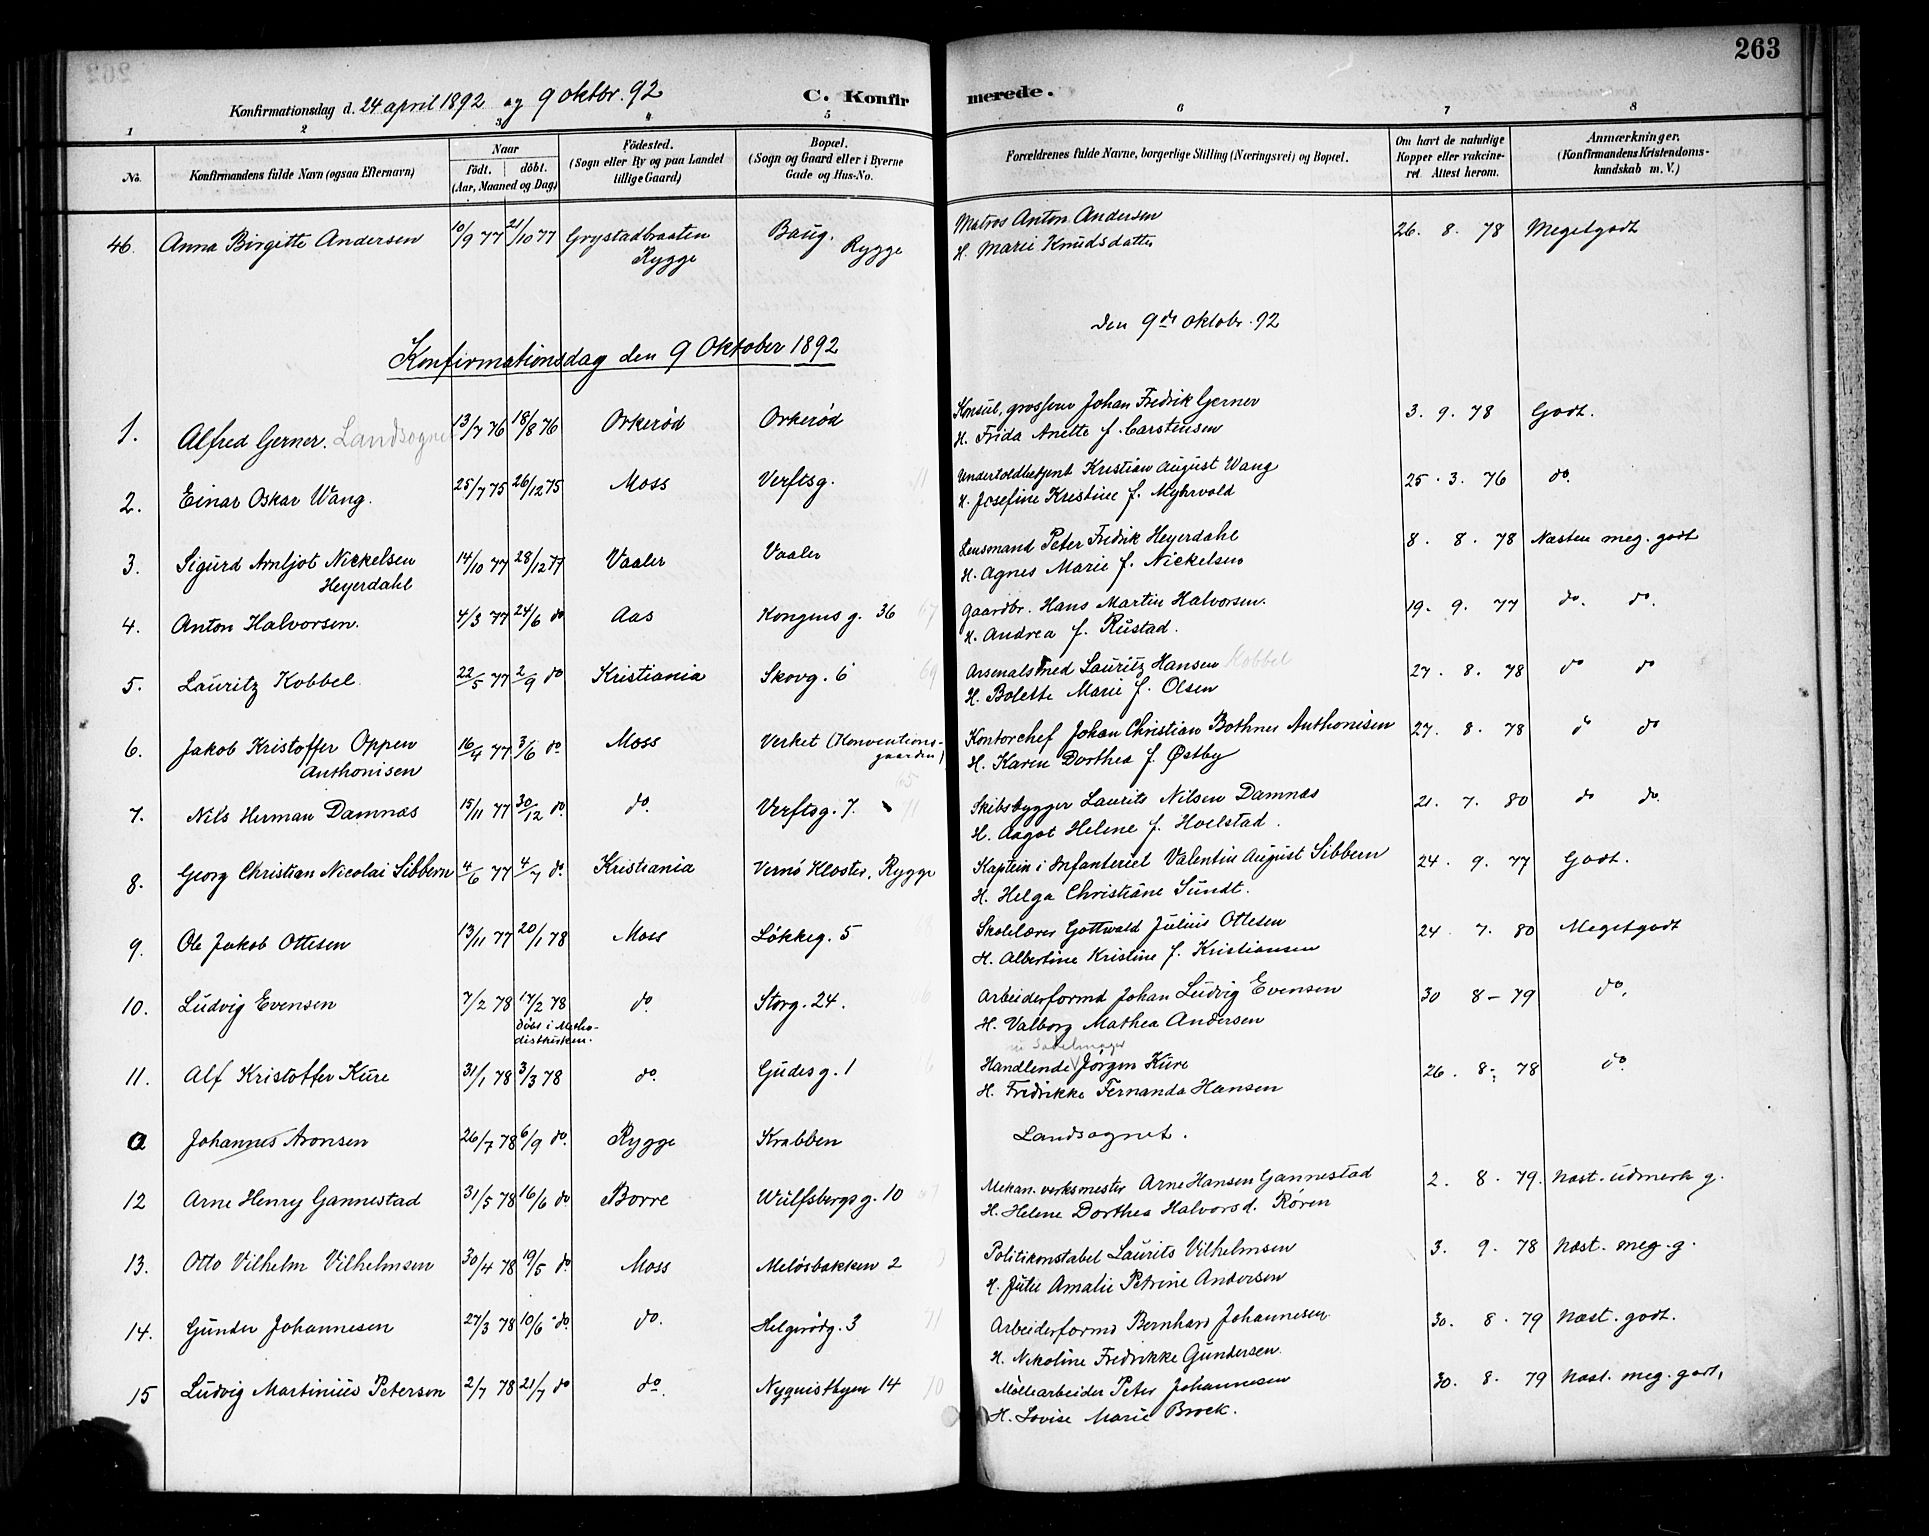 263
Konfirmationsdag d. 24 april 1892 og 9 oktbr. 92
C. Konfirmerede.
1 2 3 4 5 6 7 8
No. Konfirmandens fulde Navn (ogsaa Efternavn) Naar født. døbt. (Aar, Maaned og Dag) Fødested. (Sogn eller By og paa Landet tillige Gaard) Bopæl. (Sogn og Gaard eller i Byerne Gade og Hus-No. Forældrenes fulde Navne, borgerlige Stilling (Næringsvei) og Bopæl. Om havt de naturlige Kopper eller vakcineret. Attest herom. Anmærkninger. (Konfirmandens Kristendomskundskab m. V.)
46. Anna Birgitte Andersen 10/9 77 21/10 77 Grystadbraaten Rygge Baug. Rygge Matros Anton Andersen 26. 8. 78 Megetgodt
H. Marie Knudsdatter
Konfirmationsdag den 9 Oktober 1892
den 9de oktobr. 92
1. Alfred Gerner. Landsognet 13/7 76 18/8 76 Orkerød Orkerød Konsul, grosserer Johan Fredrik Gerner 3. 9. 78 Godt.
H. Frida Anette f. Carstensen
2. Einar Oskar Wang. 25/7 75 26/12 75 Moss Verftsg. 11 Undertoldbetjent Kristian August Wang 25. 3. 76 do.
H. Josefine Kristine f. Myhrvold
3. Sigurd Arnljot Nickelsen Heyerdahl 14/10 77 28/12 77 Vaaler Vaaler Lensmand Peter Fredrik Heyerdahl 8. 8. 78 Næsten meg. godt
H. Agnes Marie f. Nickelsen
4. Anton Halvorsen. 4/3 77 24/6 do Aas Kongens g. 36 67 Gaardbr. Hans Martin Halvorsen. 19. 9. 77 do. do.
H. Andrea f. Rustad.
5. Lauritz Kobbel. 22/5 77 2/9 do Kristiania Skovg. 6 69 Arsenalsmed Lauritz Hansen Kobbel 27. 8. 78 do do
H. Bolette Marie f. Olsen
6. Jakob Kristoffer Oppen Anthonisen 16/4 77 3/6 do Moss Verket (Konventionsgaarden) 65 Kontorchef Johan Christian Bothner Anthonisen 27. 8. 78 do do
H. Karen Dorthea f. Østby
7. Nils Herman Damnæs 15/11 77 30/12 do. do. Verftsg. 7. 11 Skibsbygger Laurits Nilsen Damnæs 21. 7. 80 do do.
H. Aagot Helene f. Hoelstad.
8. Georg Christian Nicolai Sibbern 4/6 77 4/7 do. Kristiania Vernø Kloster, Rygge Kaptein i Infanteriet Valentin August Sibbern 24. 9. 77 Godt.
H. Helga Christiane Sundt.
9. Ole Jakob Ottesen 13/11 77 20/1 78 Moss Løkkeg. 5 Skolelærer Gottwald Julius Ottesen 24. 7. 80 Megetgodt
H. Albertine Kristine f. Kristiansen
10. Ludvig Evensen 7/2 78 17/2 78 døbt i Methodistkirken. do. Storg. 24. 66 Arbeiderformd Johan Ludvig Evensen 30 8 - 79 do.
H. Valborg Mathea Andersen
11. Alf Kristoffer Kure 31/1 78 3/3 78 do. Gudesg. 1 6 Handlende Jørgen Kure 26. 8 - 78 do.
H. Fredrikke Fernanda Hansen
a Johannes Aronsen 26/7 78 6/9 do. Rygge Krabben Landsognet.
12 Arne Henry Gannestad 31/5 78 16/6 do Borre Wulfsbergs g. 10 67 Mekan. verksmester Arne Hansen Gannestad 2. 8. 79. Næst. udmerk g.
H. Helene Dorthea Halvorsd. Røren
13. Otto Vilhelm Vilhelmsen 30/4 78 19/5 do Moss Meløsbakken 2 Politikonstabel Laurits Vilhelmsen 3. 9. 78 Næst. meg. g.
H. Julie Amalie Petrine Andersen
14. Gunder Johannesen 27/3 78 10/6 do. do. Helgerødg. 3 71 Arbeiderformd Bernhard Johannesen 30. 8. 79 Næst. godt.
H. Nikoline Fredrikke Gundersen.
15 Ludvig Martinius Petersen 2/7 78 21/7 do do. Nyquistbyen 14 70 Møllearbeider Peter Johannesen 30. 8. 79 Næst. meg. godt,
H. Lovise Marie Brock.